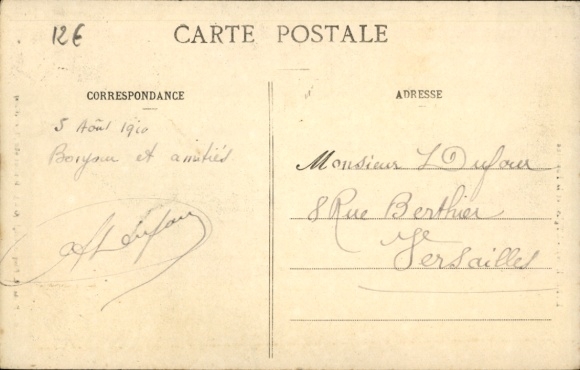 12€
CARTE POSTALE
CORRESPONDANCE
ADRESSE
5 Août 1910
Bonjour et amitiés
Dufour
Monsieur L Dufour
8 Rue Berthier
Versailles